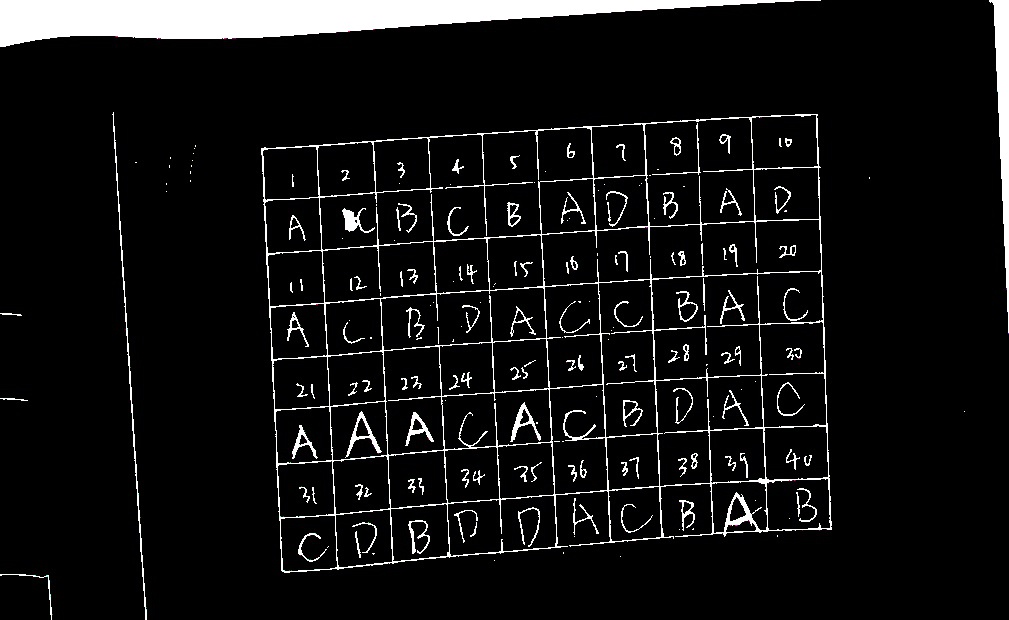 1 2 3 4 5 6 7 8 9 10
A C B C B A D B A D
11 12 13 14 15 16 17 18 19 20
A C B D A C C B A C
21 22 23 24 25 26 27 28 29 30
A A A C A C B D A C
31 32 33 34 35 36 37 38 39 40
C D B D D A C B A B